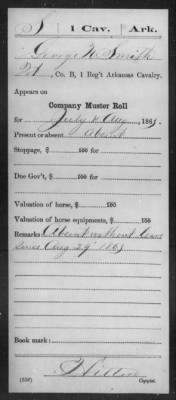 S | 1 Cav. | Ark.
George W. Smith
Pvt, Co. B, 1 Reg't Arkansas Cavalry.
Appears on
Company Muster Roll
for July & Aug, 1863.
Present or absent Absent
Stoppage, $ 100 for
Due Gov't, $ 100 for
Valuation of horse, $ 100
Valuation of horse equipments, $ 100
Remarks Absent without leave
since Aug 29" 1863
Book mark:
(358)
Copyist.